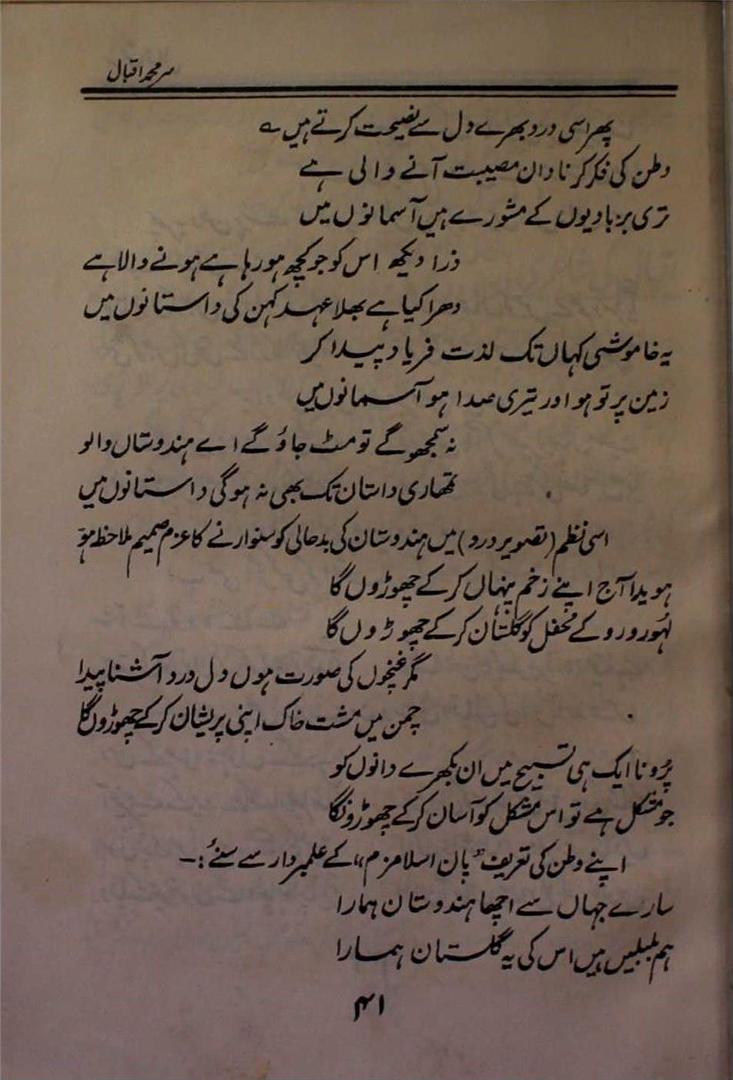 سر محمد اقبال
پھر اسی درد بھرے دل سے نصیحت کرتے ہیں ؎
وطن کی فکر کر ناداں مصیبت آنے والی ہے
تری بربادیوں کے مشورے ہیں آسمانوں میں
ذرا دیکھ اس کو جو کچھ ہو رہا ہے ہونے والا ہے
دھرا کیا ہے بھلا عہد کہن کی داستانوں میں
یہ خاموشی کہاں تک لذت فریاد پیدا کر
زمین پر تو ہو اور تیری صدا ہو آسمانوں میں
نہ سمجھو گے تو مٹ جاؤ گے اے ہندوستاں والو
تمھاری داستان تک بھی نہ ہوگی داستانوں میں
اسی نظم (تصویر درد) میں ہندوستان کی بدحالی کو سنوارنے کا عزم صمیم ملاحظہ ہو
ہویدا آج اپنے زخم پنہاں کر کے چھوڑوں گا
لہو رو رو کے محفل کو گلستان کر کے چھوڑوں گا
مگر غنچوں کی صورت ہوں دل درد آشنا پیدا
چمن میں مشت خاک اپنی پریشان کر کے چھوڑوں گا
پرونا ایک ہی تسبیح میں ان بکھرے دانوں کو
جو مشکل ہے تو اس مشکل کو آسان کر کے چھوڑونگا
اپنے وطن کی تعریف "پان اسلامزم" کے علمبردار سے سنئے :۔
سارے جہاں سے اچھا ہندوستان ہمارا
ہم بلبلیں ہیں اس کی یہ گلستان ہمارا
۴۱